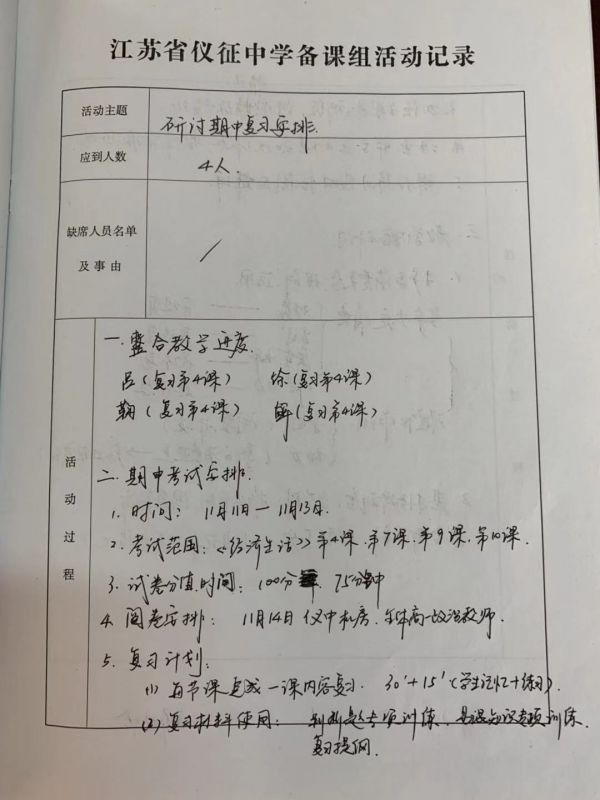 江苏省仪征中学备课组活动记录
活动主题
研讨期中复习安排.
应到人数
4人.
缺席人员名单
及事由
/
活动过程
一.整合教学进度.
吕(复习第4课) 徐(复习第4课)
鞠(复习第4课) 解(复习第4课)
二.期中考试安排.
1.时间: 11月11日—11月13日.
2.考试范围:《经济生活》第4课.第7课.第9课.第10课.
3.试卷分值时间: 100分 75分钟
4.阅卷安排: 11月14日 仪中机房.全体高一政治教师.
5.复习计划:
(1)每节课完成一课内容复习. 30'+15'(学生记忆+练习).
(2)复习材料使用: 判断题专项训练、易混知识专项训练.
复习提纲.